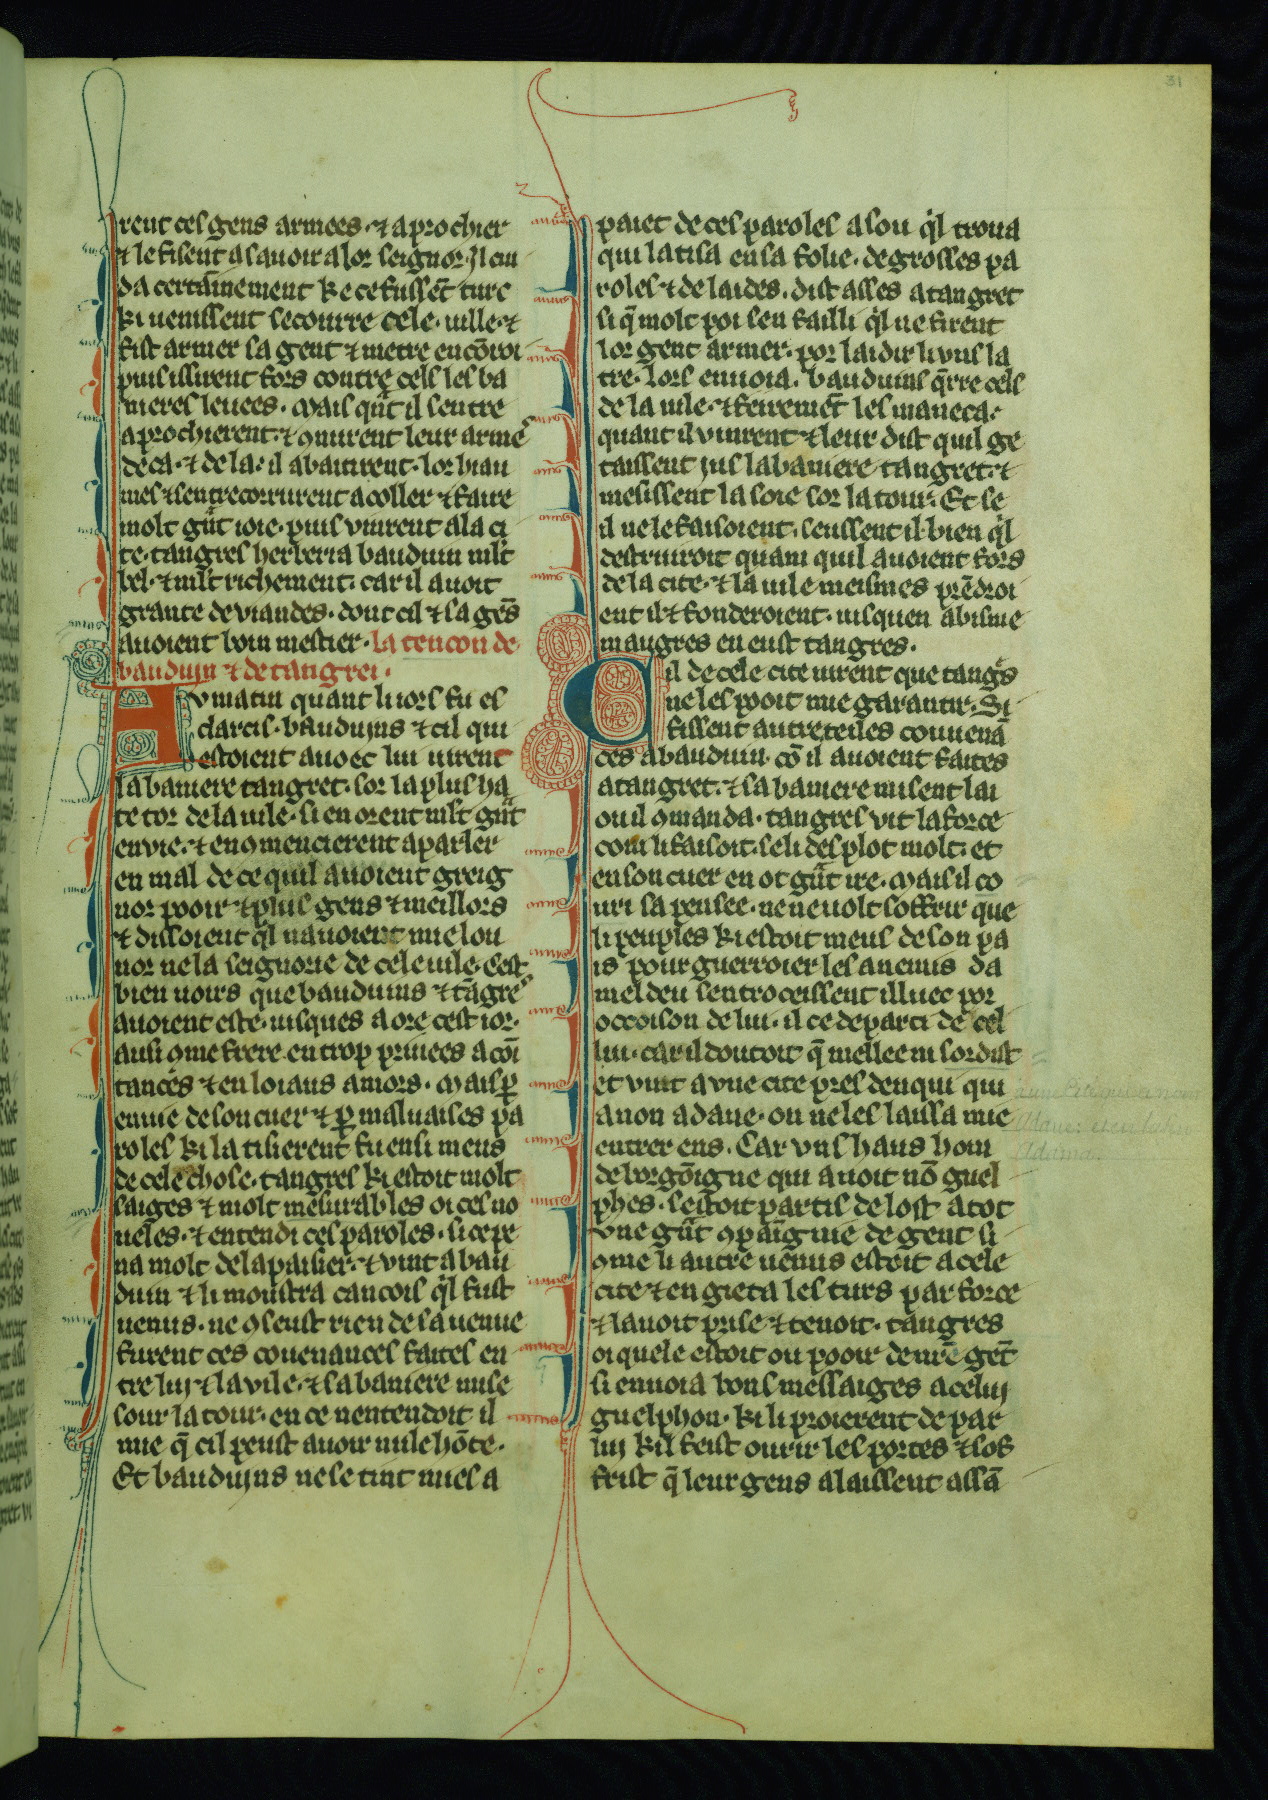 31
rent ces gens armees · ⁊ aprochier
⁊ le fisent a sauoir a lor seignor. Il cui
da certainement ke ce fussēt turc
ki uenissent secourre cele · uille · ⁊
fist armer sa gent ⁊ metre en cōroi
puis issirent fors contre cels les ba
nieres leuees · Mais qᵃnt il sentre
aprochierent · ⁊ ꝯnurent leur armeˢ
de ca · ⁊ de la · il abatirent · lor hiau
mes ⁊ sentrecorrurent acoller ⁊ faire
molt gᵃnt ioie · puis vinrent a la ci
te · tangres herberia bauduin mlt
bel · ⁊ mlt richement · car il auoit
grante de viandes · dont cil ⁊ sa gēs
auoient boin mestier · la tencon de
bauduyn ⁊ de tangrei ·
Av matin quant li iors fu es
clarcis · bauduyns ⁊ cil qui
estoient auoec lui uirent
la baniere tangret · sor la plus ha
te tor de la uile · si en orent mlt gᵃnt
envie · ⁊ en ꝯmencierent a parler
en mal de ce quil auoient greig
nor pooir ⁊ plus gens ⁊ meillors
⁊ dissoient qͥl nauoient mie lou
nor ne la seignorie de cele uile · Cest
bien uoirs que bauduins ⁊ tāgreˢ
auoient este · iusques a ore cest ior ·
ausi ꝯme frere en trop priuees acoī
tances ⁊ en loiaus amors · Mais ꝑ
enuie de son cuer ⁊ ꝑ maluaises pa
roles ki latisierent fu ensi meus
de cele chose · tangres ki estoit molt
saiges ⁊ molt mesurables oi ces no
ueles · ⁊ entendi ces paroles · si ce pe
na molt de lapaisier · ⁊ vint a bau
duin ⁊ li monstra cancois qͥl fust
uenus · ne ꝯ seust rien de sa uenue
furent ces couenances faites en
tre luy ⁊ la vile · ⁊ sa baniere mise
sour la tour · en ce nentendoit il
mie q̄ cil peust auoir nule hōte ·
Et bauduyns ne se tint mies a
paiet de ces paroles a sou qͥl troua
qui latisa en sa folie · de grosses pa
roles ⁊ de laides · dist asses a tangret
si q̄ molt poi sen failli qͥl ne firent
lor gent armer · por laidir li vns la
tre · lors enuoia · bauduins q̄rre cels
de la uile · ⁊ feiremēt les maneca ·
quant il vinrent ⁊ leur dist quil ge
taissent jus la baniere tangret · ⁊
mesissent la soie sor la tour · Et se
il ne le faisoient · seussent il bien qͥl
destruiroit quam quil auoient fors
de la cite · ⁊ la uile meismes prēdroi
ent il ⁊ fonderoient · iusquen abisme
maugres en eust tangres ·
Cil de cele cite uirent que tangˢs
ne les pooit mie garantir · Si
fissent autreteiles conuenā
ces a bauduin · cō il auoient faites
a tangret · ⁊ sa baniere misent lai
ou il ꝯmanda · tangres vit la force
com li faisoit · se li desplot molt · et
en son cuer en ot gᵃnt ire · Mais il co
uri sa pensee · ne ne uolt soffrir que
li peuples ki estoit meus de son pa
is pour guerroier les anemis da
mel deu sentroceissent illuec por
occoison de lui · il ce departi de cel
liu · car il doutoit q̄ mellee ni sordist
et vint a vne cite pres denqui qui
a non adane · ou ne les laissa mie
entrer ens · Car vns haus hom
de borgōigne qui auoit nō guel
phes · sestoit partis de lost a tot
vne gᵃnt ꝯpaīgnie de gent si
ꝯme li autre uenus estoit a cele
cite ⁊ en gieta les turs par force
⁊ lauoit prise ⁊ tenoit · tangres
oi quele estoit ou pooir de nr̄e gēt
si enuoia bons messaiges a celuy
guelphon · ki li proierent de par
luy kil feist ourir les portes ⁊ sof
frist q̄ leur gens alaissent assā